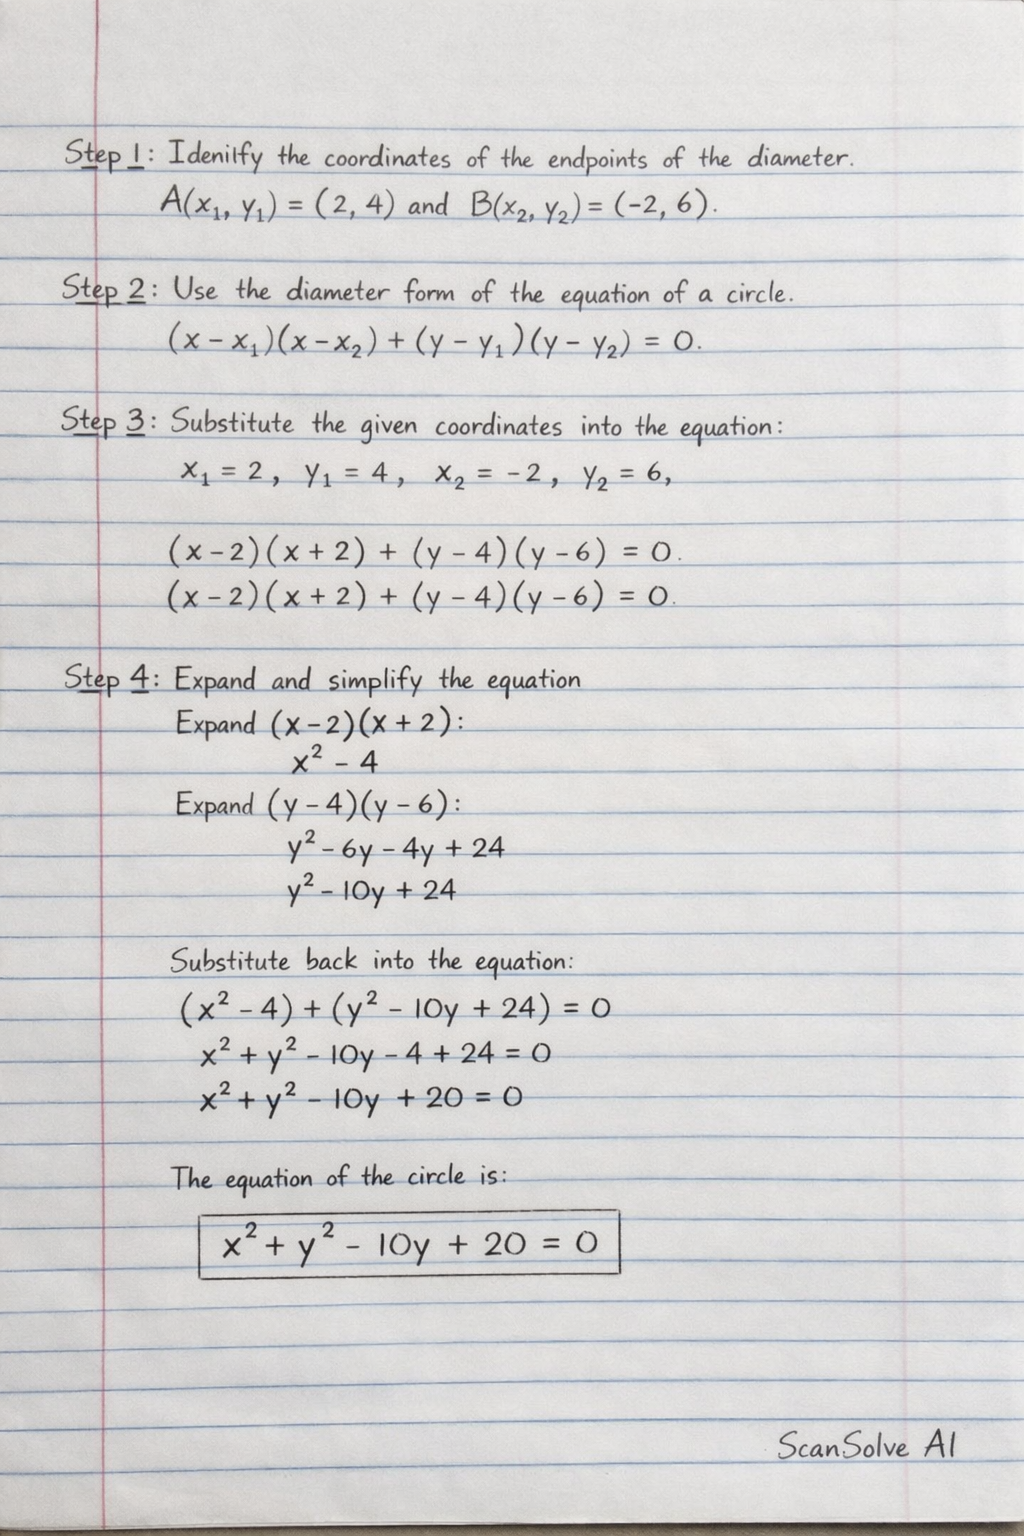 Step 1: Idenilfy the coordinates of the endpoints of the diameter.
A(x₁, y₁) = (2, 4) and B(x₂, y₂) = (-2, 6).
Step 2: Use the diameter form of the equation of a circle.
(x - x₁)(x - x₂) + (y - y₁)(y - y₂) = 0.
Step 3: Substitute the given coordinates into the equation:
x₁ = 2, y₁ = 4, x₂ = -2, y₂ = 6,
(x - 2)(x + 2) + (y - 4)(y - 6) = 0.
(x - 2)(x + 2) + (y - 4)(y - 6) = 0.
Step 4: Expand and simplify the equation
Expand (x - 2)(x + 2):
x² - 4
Expand (y - 4)(y - 6):
y² - 6y - 4y + 24
y² - 10y + 24
Substitute back into the equation:
(x² - 4) + (y² - 10y + 24) = 0
x² + y² - 10y - 4 + 24 = 0
x² + y² - 10y + 20 = 0
The equation of the circle is:
x² + y² - 10y + 20 = 0
ScanSolve AI